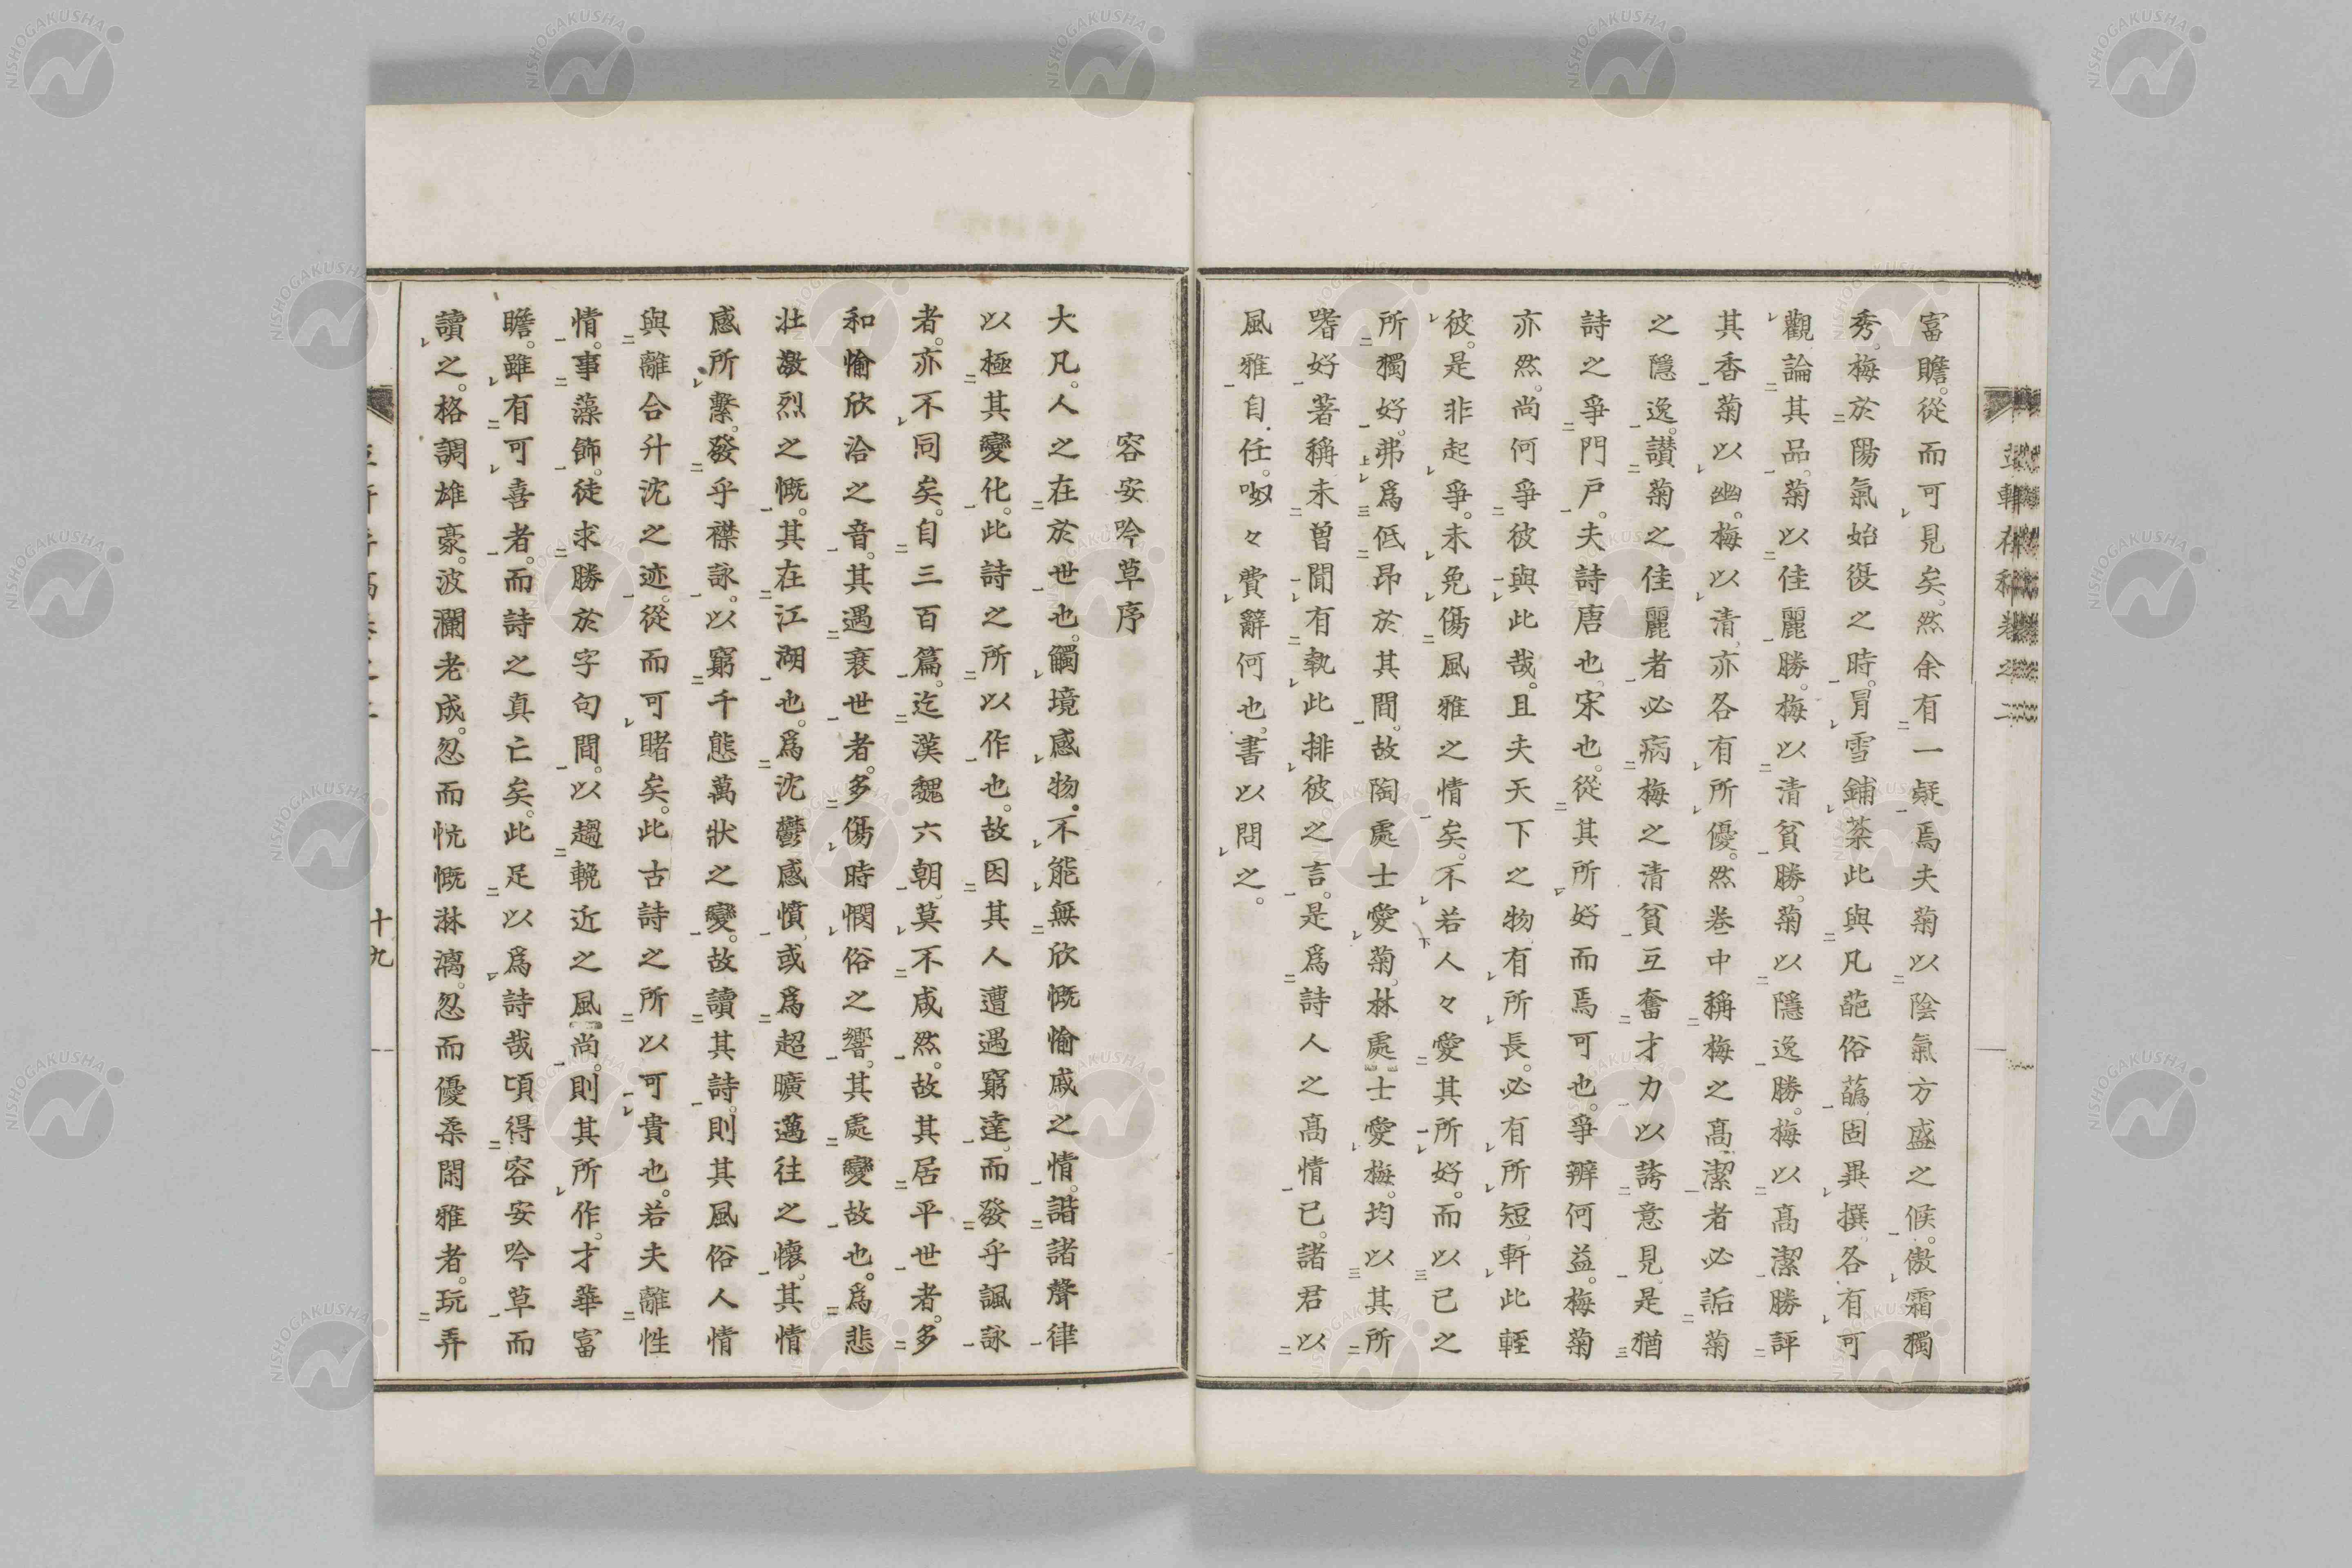 富贍。從而可見矣。然余有一疑焉夫菊以陰氣方盛之候。傲霜獨
秀。梅於陽氣始復之時。冐雪鋪棻此與凡葩俗蘤固異撰、各有可
觀論其品。菊以佳麗勝。梅以清貧勝。菊以隱逸勝。梅以高潔勝評
其香菊以幽。梅以清、亦各有所優。然卷中稱梅之高潔者必詬菊
之隱逸。讃菊之佳麗者必病梅之清貧互奮才力以誇意見是猶
詩之爭門戸。夫詩唐也。宋也。從其所好而焉可也。爭辨何益。梅菊
亦然。尚何爭彼與此哉。且夫天下之物有所長。必有所短、軒此輊
彼。是非起爭。未免傷風雅之情矣。不若人々愛其所好。而以已之
所獨好。弗爲低昂於其間。故陶處士愛菊。林處士愛梅。均以其所
嗜好著稱未曽聞有執此排彼之言。是爲詩人之高情已。諸君以
風雅自任。呶々費辭何也。書以問之。
容安吟草序
大凡。人之在於世也。觸境感物。不能無欣慨愉戚之情。諧諸聲律
以極其變化。此詩之所以作也。故因其人遭遇窮達。而發乎諷詠
者。亦不同矣。自三百篇。迄漢魏六朝。莫不咸然。故其居平世者。多
和愉欣洽之音。其遇衰世者。多傷時憫俗之響。其處變故也。爲悲
壮激烈之慨。其在江湖也。爲沈鬱感憤、或爲超曠邁往之懷、其情
感所繫。發乎襟詠。以窮千態萬狀之變。故讀其詩。則其風俗人情
與離合升沈之迹。從而可賭矣。此古詩之所以可貴也。若夫離性
情。事藻飾。徒求勝於字句間。以趨輓近之風尚。則其所作。才華富
瞻。雖有可喜者。而詩之真亡矣。此足以爲詩哉頃得容安吟草而
讀之。格調雄豪。波瀾老成。忽而忼慨淋漓。忽而優柔閑雅者。玩弄
十九